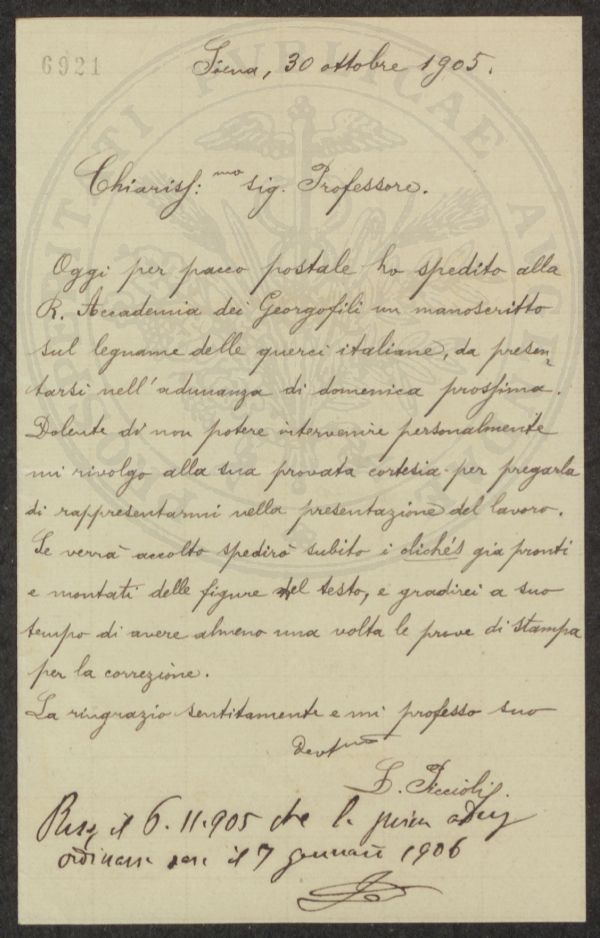 6921
Siena, 30 ottobre 1905.
Chiariss:mo sig. Professore.
Oggi per pacco postale ho spedito alla
R. Accademia dei Georgofili un manoscritto
sul legname delle querci italiane, da presen-
tarsi nell'adunanza di domenica prossima.
Dolente di non potere intervenire personalmente
mi rivolgo alla sua provata cortesia per pregarla
di rappresentarmi nella presentazione del lavoro.
Se verrà accolto spedirò subito i clichés già pronti
e montati delle figure del testo, e gradirei a suo
tempo di avere almeno una volta le prove di stampa
per la correzione.
La ringrazio sentitamente e mi professo suo
devtmo
L. Piccioli.
Risp il 6.11.905 che la prima
il 7 gennaio 1906